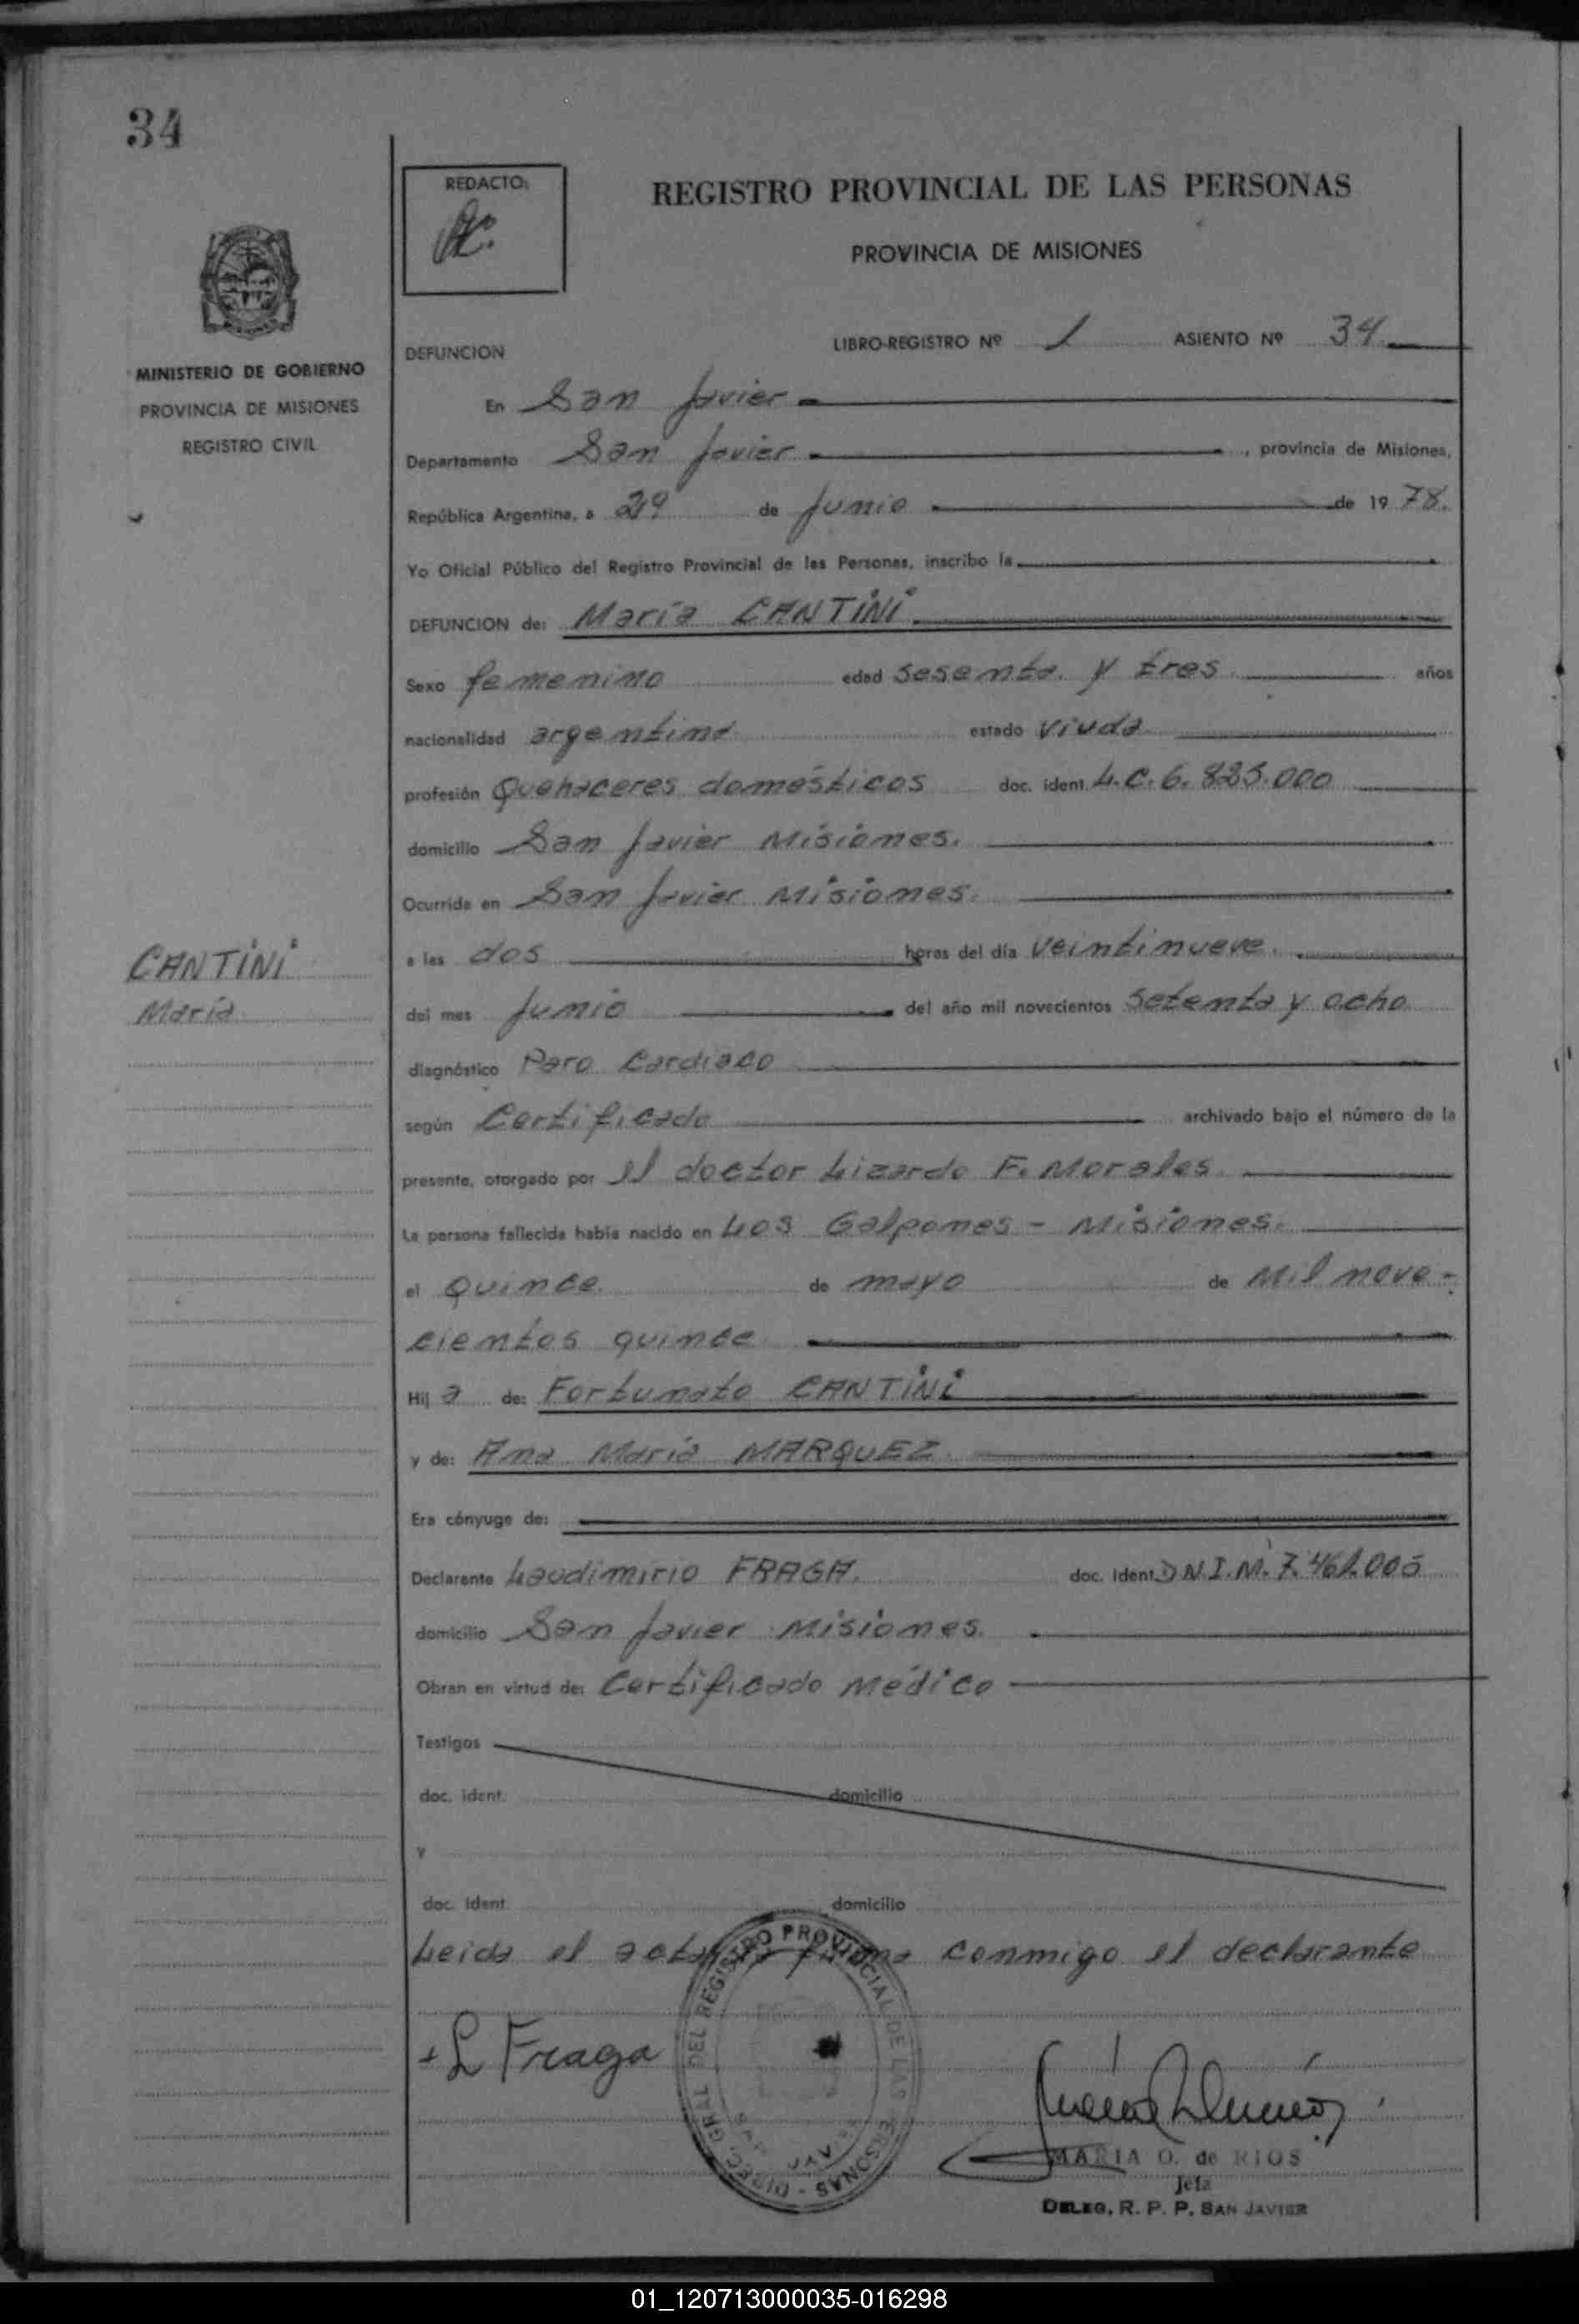 34
REDACTO:
REGISTRO PROVINCIAL DE LAS PERSONAS
PROVINCIA DE MISIONES
MINISTERIO DE GOBIERNO
PROVINCIA DE MISIONES
REGISTRO CIVIL
DEFUNCION
LIBRO-REGISTRO Nº 1 ASIENTO Nº 34
En San Javier
Departamento San Javier, provincia de Misiones,
República Argentina, a 29 de Junio de 1978.
Yo Oficial Público del Registro Provincial de las Personas, inscribo la
DEFUNCION de: María CANTiNi
Sexo femenino edad sesenta y tres años
nacionalidad argentina estado Viuda
profesión Quehaceres domésticos doc. ident. L.C. 6.825.000
domicilio San Javier Misiones.
Ocurrida en San Javier Misiones.
CANTiNi
María
a las dos horas del día veintinueve.
del mes Junio del año mil novecientos setenta y ocho
diagnóstico Paro Cardiaco
según Certificado archivado bajo el número de la
presente, otorgado por el doctor Lizardo F. Morales
La persona fallecida había nacido en Los Galpones - Misiones.
el Quince de mayo de mil nove-
cientos quince
Hij a de: Fortunato CANTiNi
y de: Ana María MARQUEZ
Era cónyuge de:
Declarante Laudimirio FRAGA. doc. ident. D.N.I.M. 7.461.005
domicilio San Javier Misiones
Obran en virtud de: Certificado Médico
Testigos
doc. ident. domicilio
y
doc. ident. domicilio
Leida el acta firma conmigo el declarante
L Fraga
DIREC. GRAL. DEL REGISTRO PROVINCIAL DE LAS PERSONAS
MARIA O. de RIOS
Jefa
DELEG. R. P. P. SAN JAVIER
01_120713000035-016298